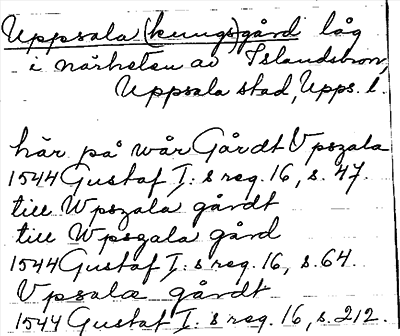 Uppsala (kungs)gård låg
i närheten av Islandsbron,
Uppsala stad, Upps. l.
här på wår Gårdt Vpszala
1544 Gustaf I: s reg. 16, s. 47.
till Wpszala gårdt
till Wpszala gård
1544 Gustaf I: s reg. 16, s. 64.
Vpsala gårdt
1544 Gustaf I: s reg. 16, s. 212.